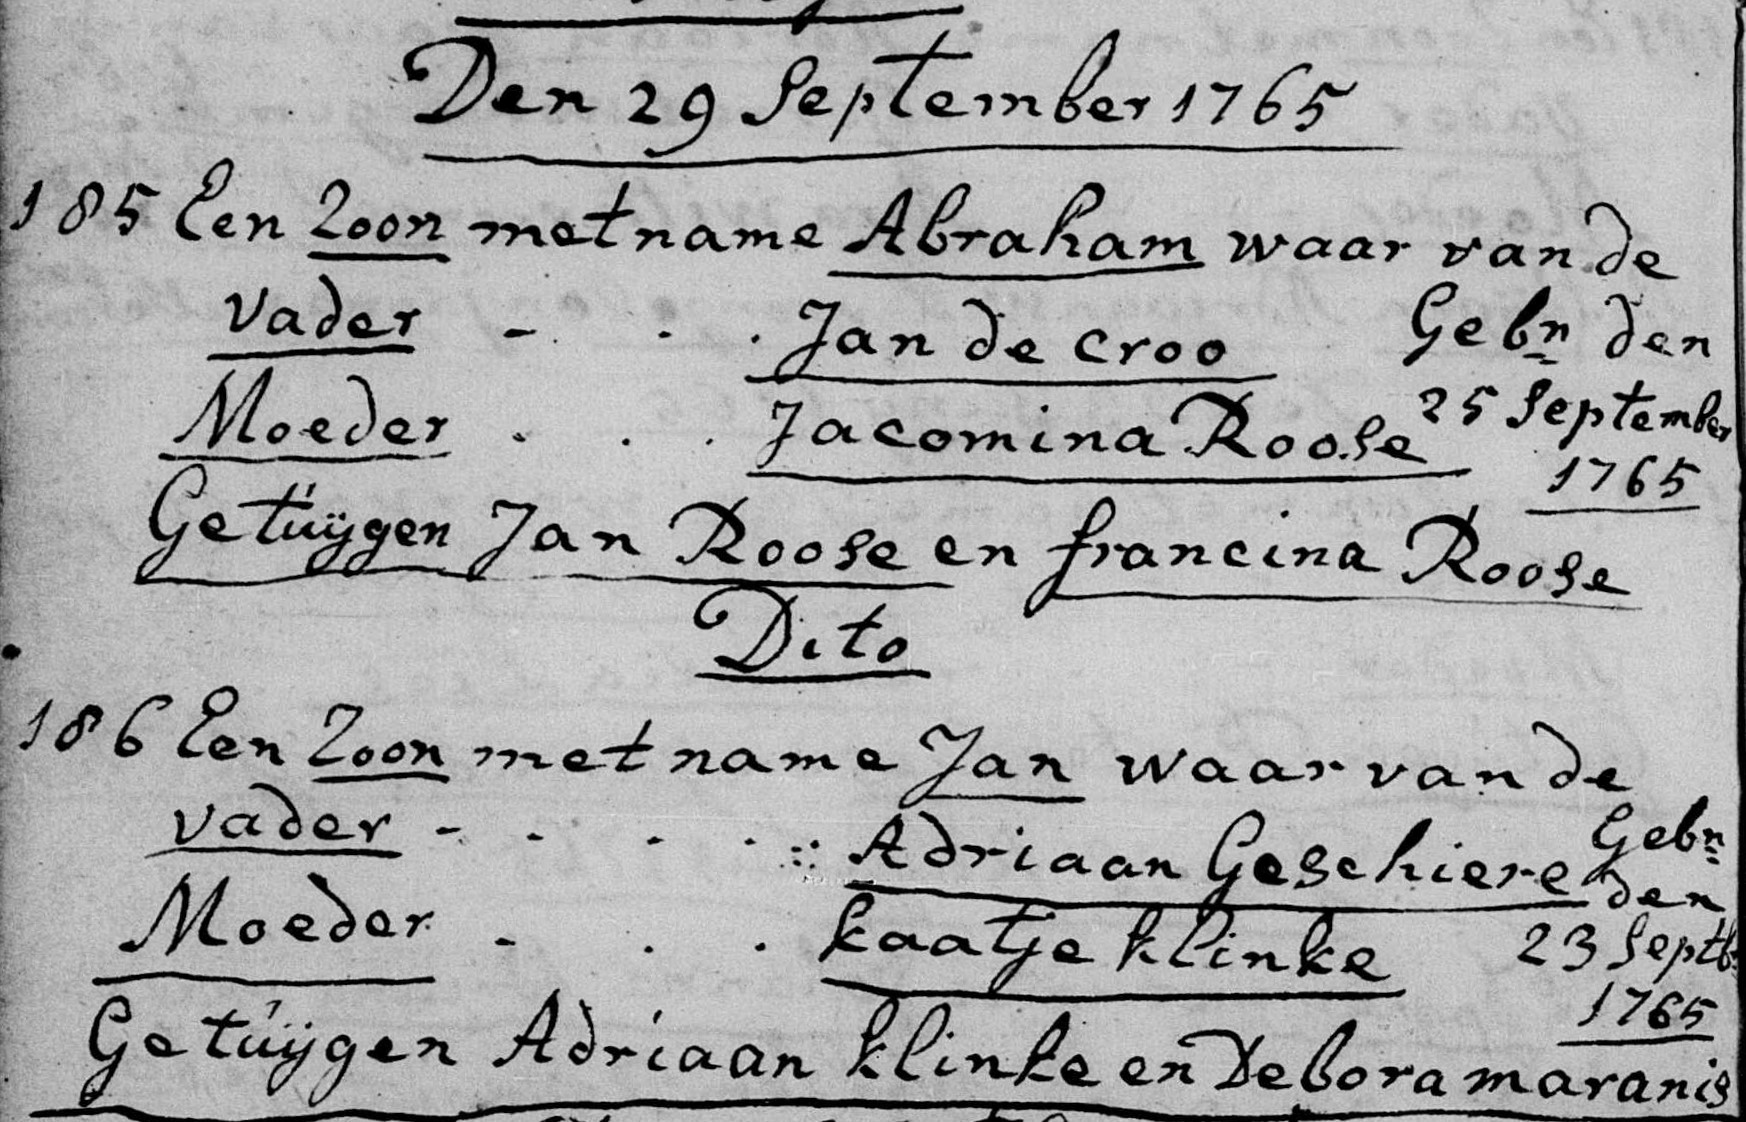 Den 29 September 1765
185 Een Zoon met name Abraham waar van de
vader - . . . Jan de Croo Gebn den
Moeder . . . Jacomina Roose 25 September
1765
Getuÿgen Jan Roose en francina Roose
Dito
186 Een Zoon met name Jan waar van de
vader - . . . :: Adriaan Geschiere Gebn
den
Moeder - . . kaatje klinke 23 Septb
1765
Getuÿgen Adriaan klinke en Debora maranis